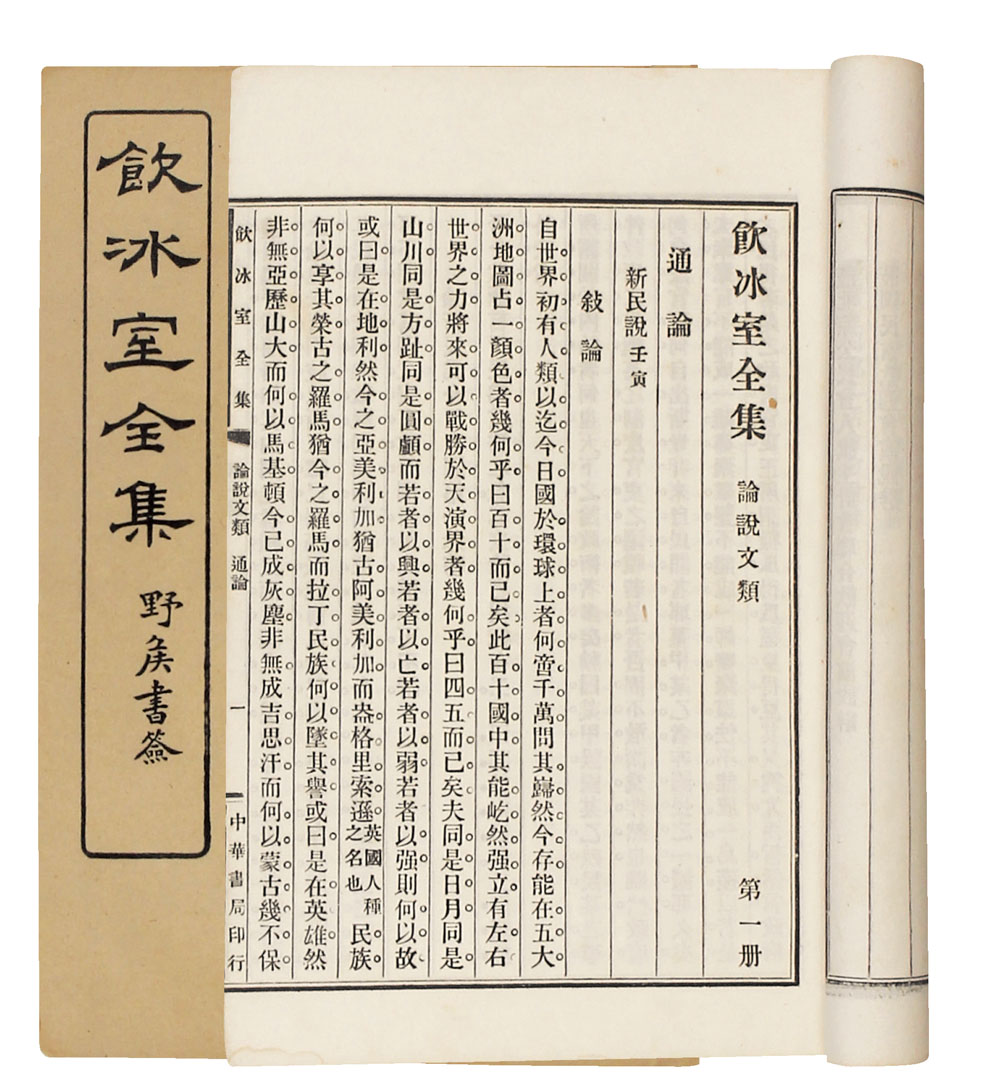 飲冰室全集 論說文類 第一册
通論
新民說 壬寅
敍論
自世界初有人類以迄今日國於環球上者何啻千萬問其巋然今存能在五大
洲地圖占一顏色者幾何乎曰百十而已矣此百十國中其能屹然强立有左右
世界之力將來可以戰勝於天演界者幾何乎曰四五而已矣夫同是日月同是
山川同是方趾同是圓顱而若者以興若者以亡若者以弱若者以强則何以故
或曰是在地利然今之亞美利加猶古阿美利加而盎格里索遜英國人種之名也民族
何以享其榮古之羅馬猶今之羅馬而拉丁民族何以墜其譽或曰是在英雄然
非無亞歷山大而何以馬基頓今已成灰塵非無成吉思汗而何以蒙古幾不保
飲冰室全集 論說文類 通論 一 中華書局印行
飲冰室全集
野矦書簽